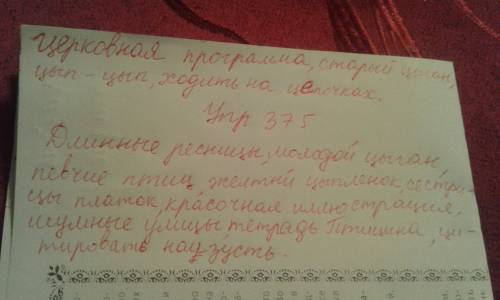 Церковная программа, старый цыган,
цып - цып, ходить на цепочках.
Упр 375
Длинные ресницы, молодой цыган
певчие птиц желтый цыпленок, сестри-
цы платок, красочная иллюстрация,
шумные улицы тетрадь Птицына, ци-
тировать наузусть.